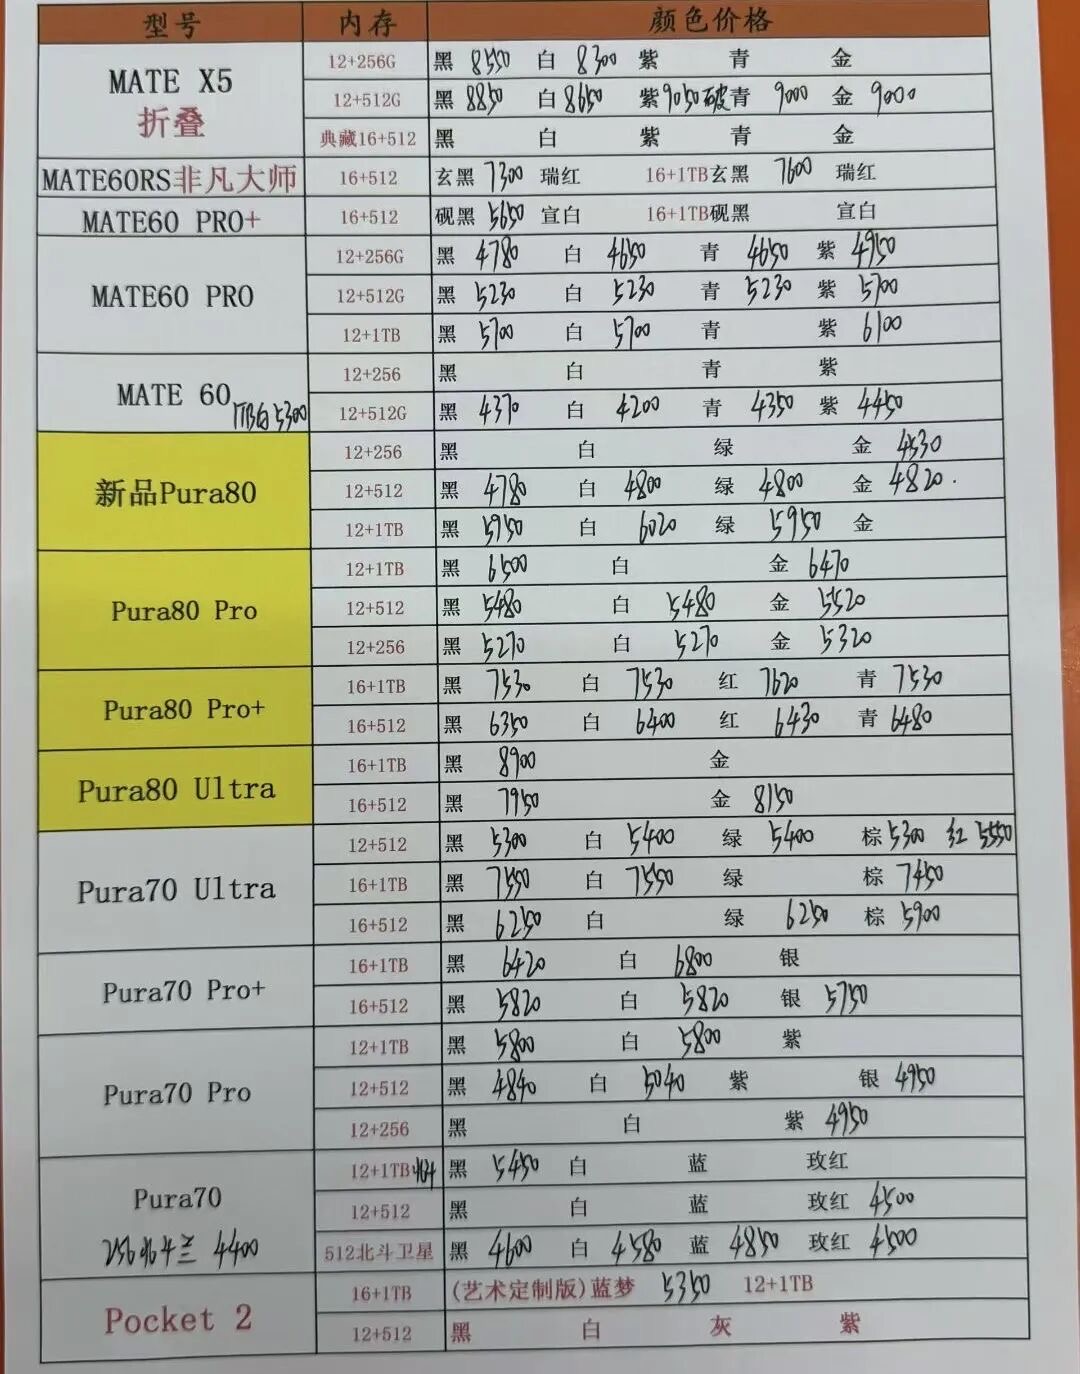 型号 内存 颜色价格
12+256G 黑 8550 白 8300 紫 青 金
MATE X5
折叠
12+512G 黑 8850 白 8650 紫 9050 破 青 9000 金 9000
典藏16+512 黑 白 紫 青 金
MATE60RS非凡大师 16+512 玄黑 7300 瑞红 16+1TB玄黑 7600 瑞红
MATE60 PRO+ 16+512 砚黑 5650 宣白 16+1TB砚黑 宣白
12+256G 黑 4780 白 4650 青 4650 紫 4950
MATE60 PRO 12+512G 黑 5230 白 5230 青 5230 紫 5700
12+1TB 黑 5700 白 5700 青 紫 6100
MATE 60 12+256 黑 白 青 紫
1TB白 5300 12+512G 黑 4370 白 4200 青 4350 紫 4450
12+256 黑 白 绿 金 4530
新品Pura80 12+512 黑 4780 白 4800 绿 4800 金 4820.
12+1TB 黑 5950 白 6020 绿 5950 金
12+1TB 黑 6500 白 金 6470
Pura80 Pro 12+512 黑 5480 白 5480 金 5520
12+256 黑 5270 白 5270 金 5320
16+1TB 黑 7530 白 7530 红 7620 青 7530
Pura80 Pro+ 16+512 黑 6350 白 6400 红 6430 青 6480
16+1TB 黑 8900 金
Pura80 Ultra 16+512 黑 7950 金 8150
12+512 黑 5300 白 5400 绿 5400 棕 5300 红 5550
Pura70 Ultra 16+1TB 黑 7550 白 7550 绿 棕 7450
16+512 黑 6250 白 绿 6250 棕 5900
16+1TB 黑 6420 白 6800 银
Pura70 Pro+ 16+512 黑 5820 白 5820 银 5750
12+1TB 黑 5800 白 5800 紫
Pura70 Pro 12+512 黑 4840 白 5040 紫 银 4950
12+256 黑 白 紫 4950
12+1TB 北斗 黑 5450 白 蓝 玫红
Pura70 12+512 黑 白 蓝 玫红 4500
256北斗兰 4400 512北斗卫星 黑 4600 白 4580 蓝 4850 玫红 4500
16+1TB (艺术定制版)蓝梦 5350 12+1TB
Pocket 2 12+512 黑 白 灰 紫